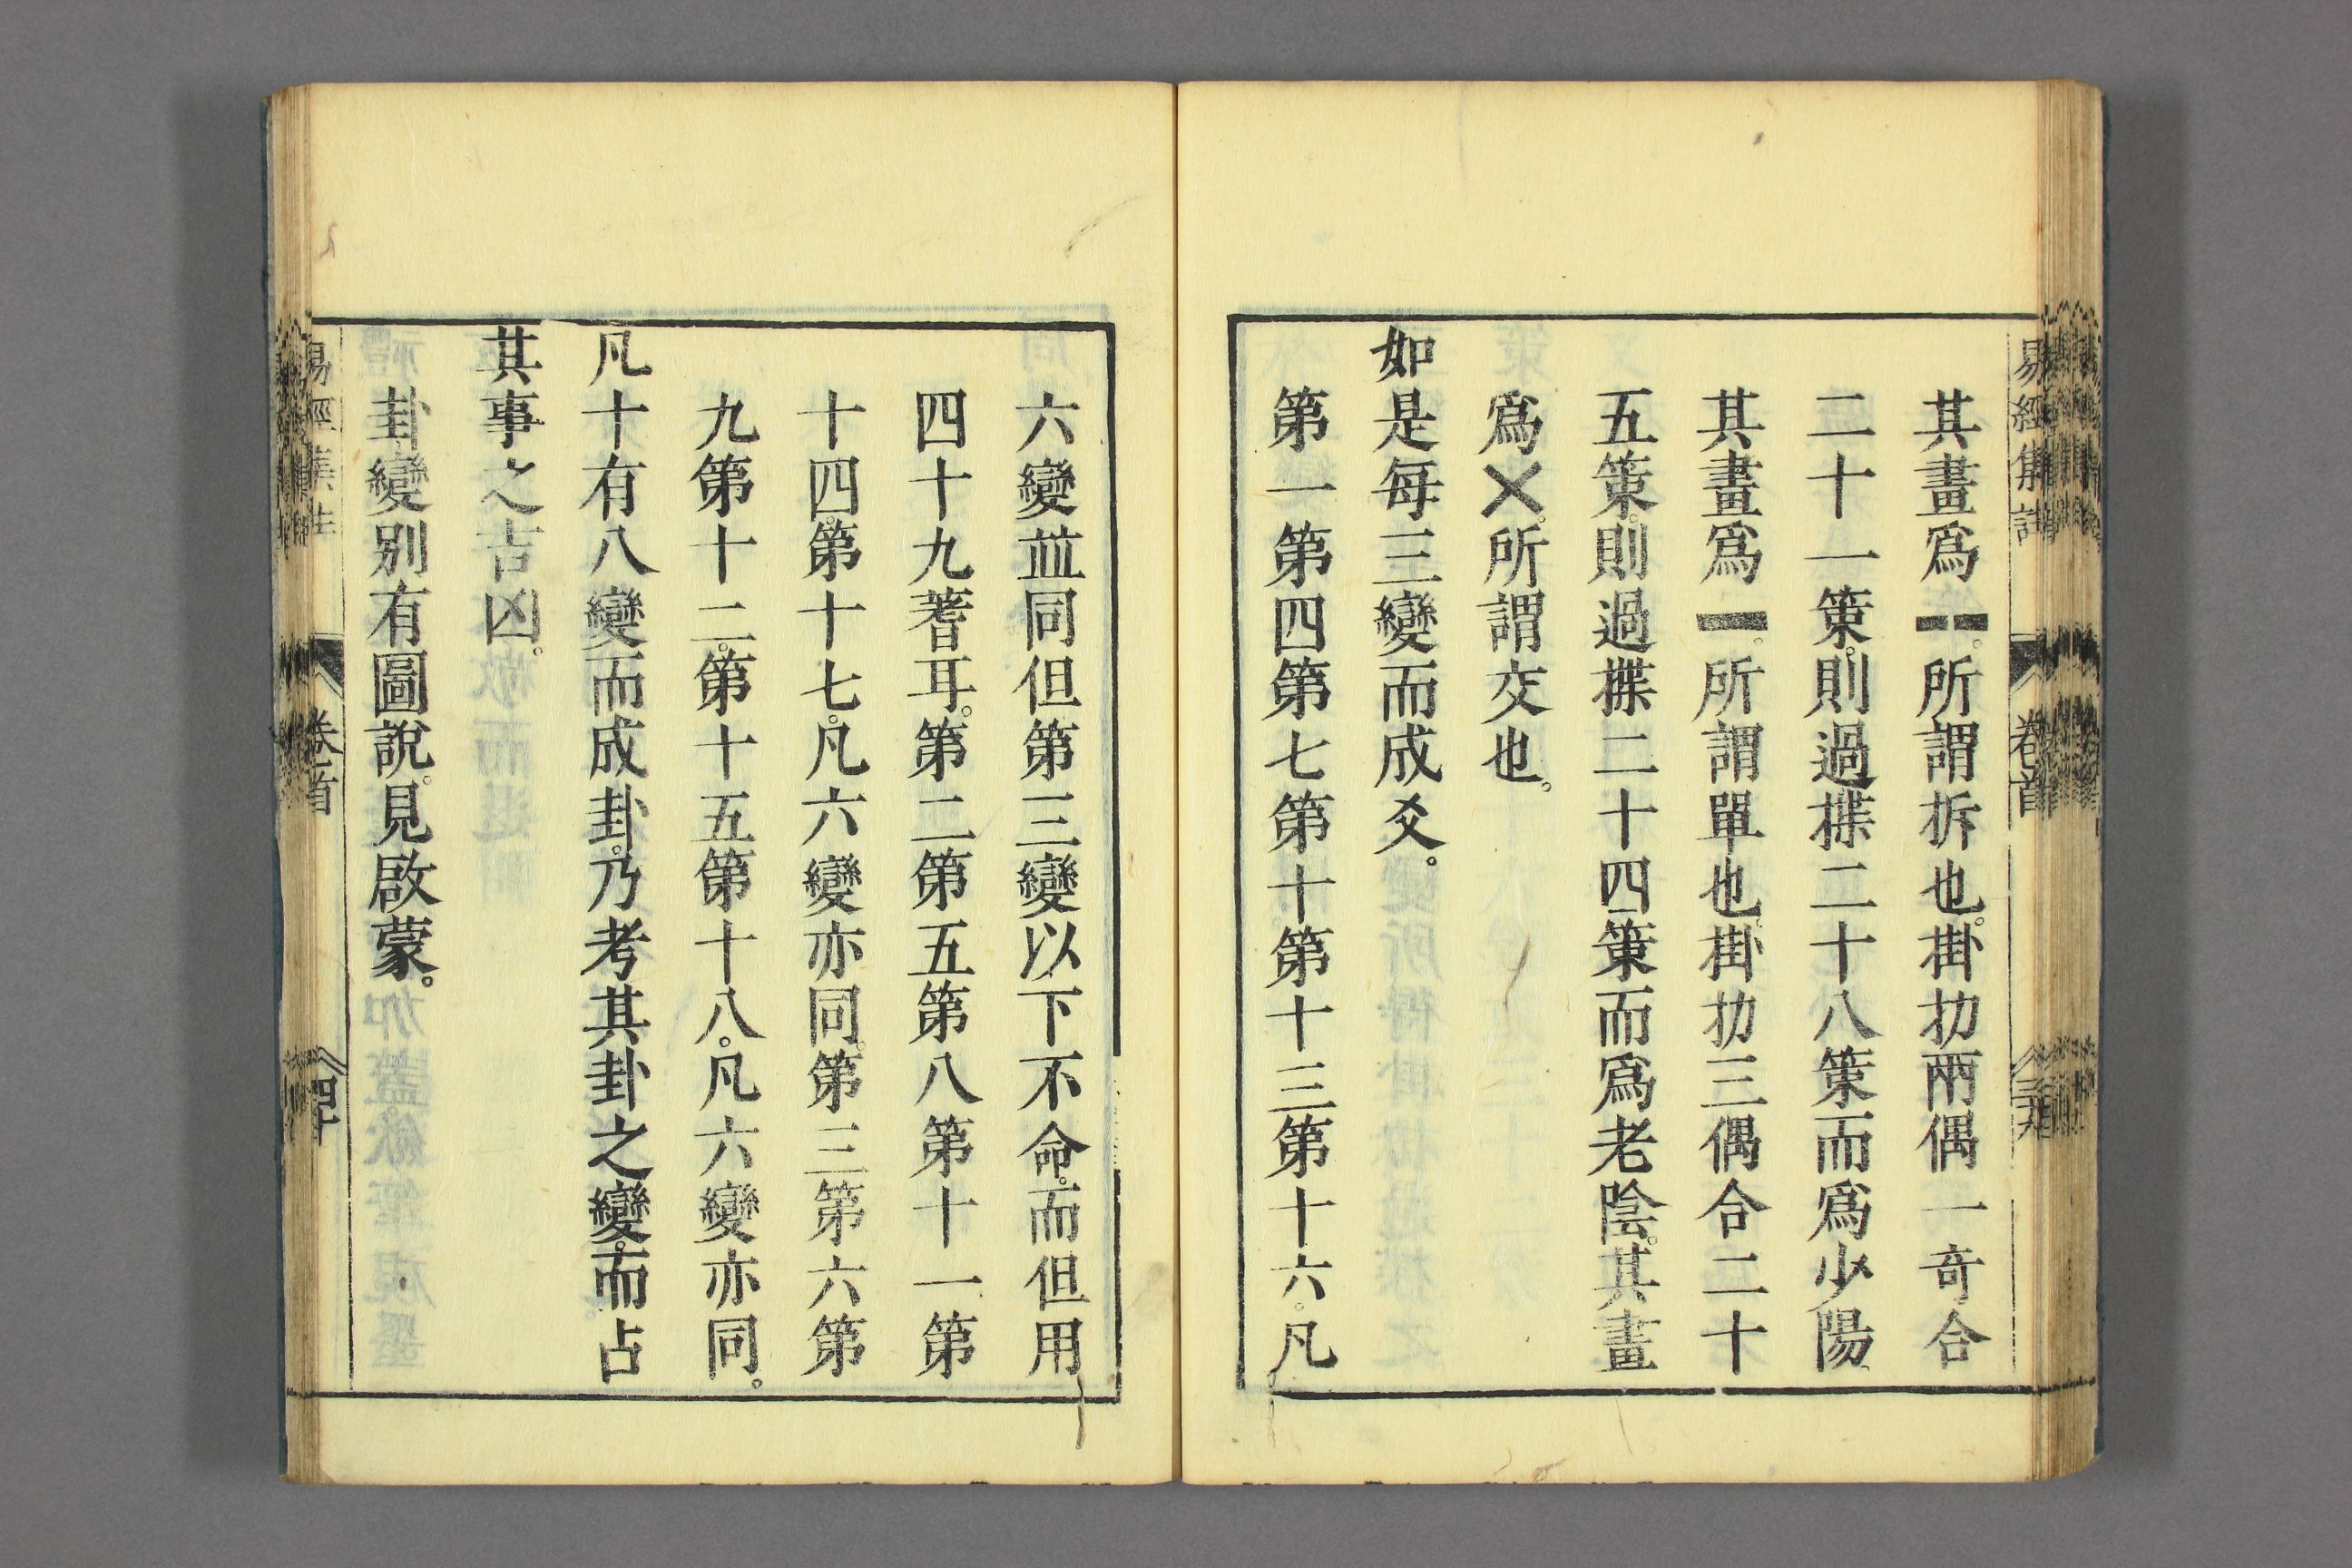 易經集註 卷首 三十九
其畫為⚋。所謂拆也。掛扐兩偶一奇合
二十一策。則過揲二十八策而為少陽、
其畫為⚊。所謂單也。掛扐三偶合二十
五策。則過揲二十四策而為老陰。其畫
為✕。所謂交也。
如是每三變而成爻。
第一第四第七第十第十三第十六。凡
六變並同但第三變以下不命。而但用
四十九蓍耳。第二第五第八第十一第
十四。第十七。凡六變亦同。第三第六第
九第十二。第十五第十八。凡六變亦同。
凡十有八變而成卦。乃考其卦之變。而占
其事之吉凶。
卦變别有圖說。見啟蒙。
易經集註 卷首 四十